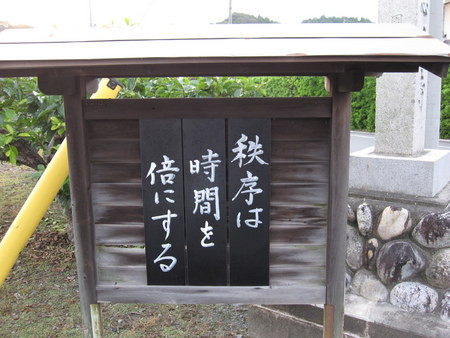 秩序は
時間を
倍にする